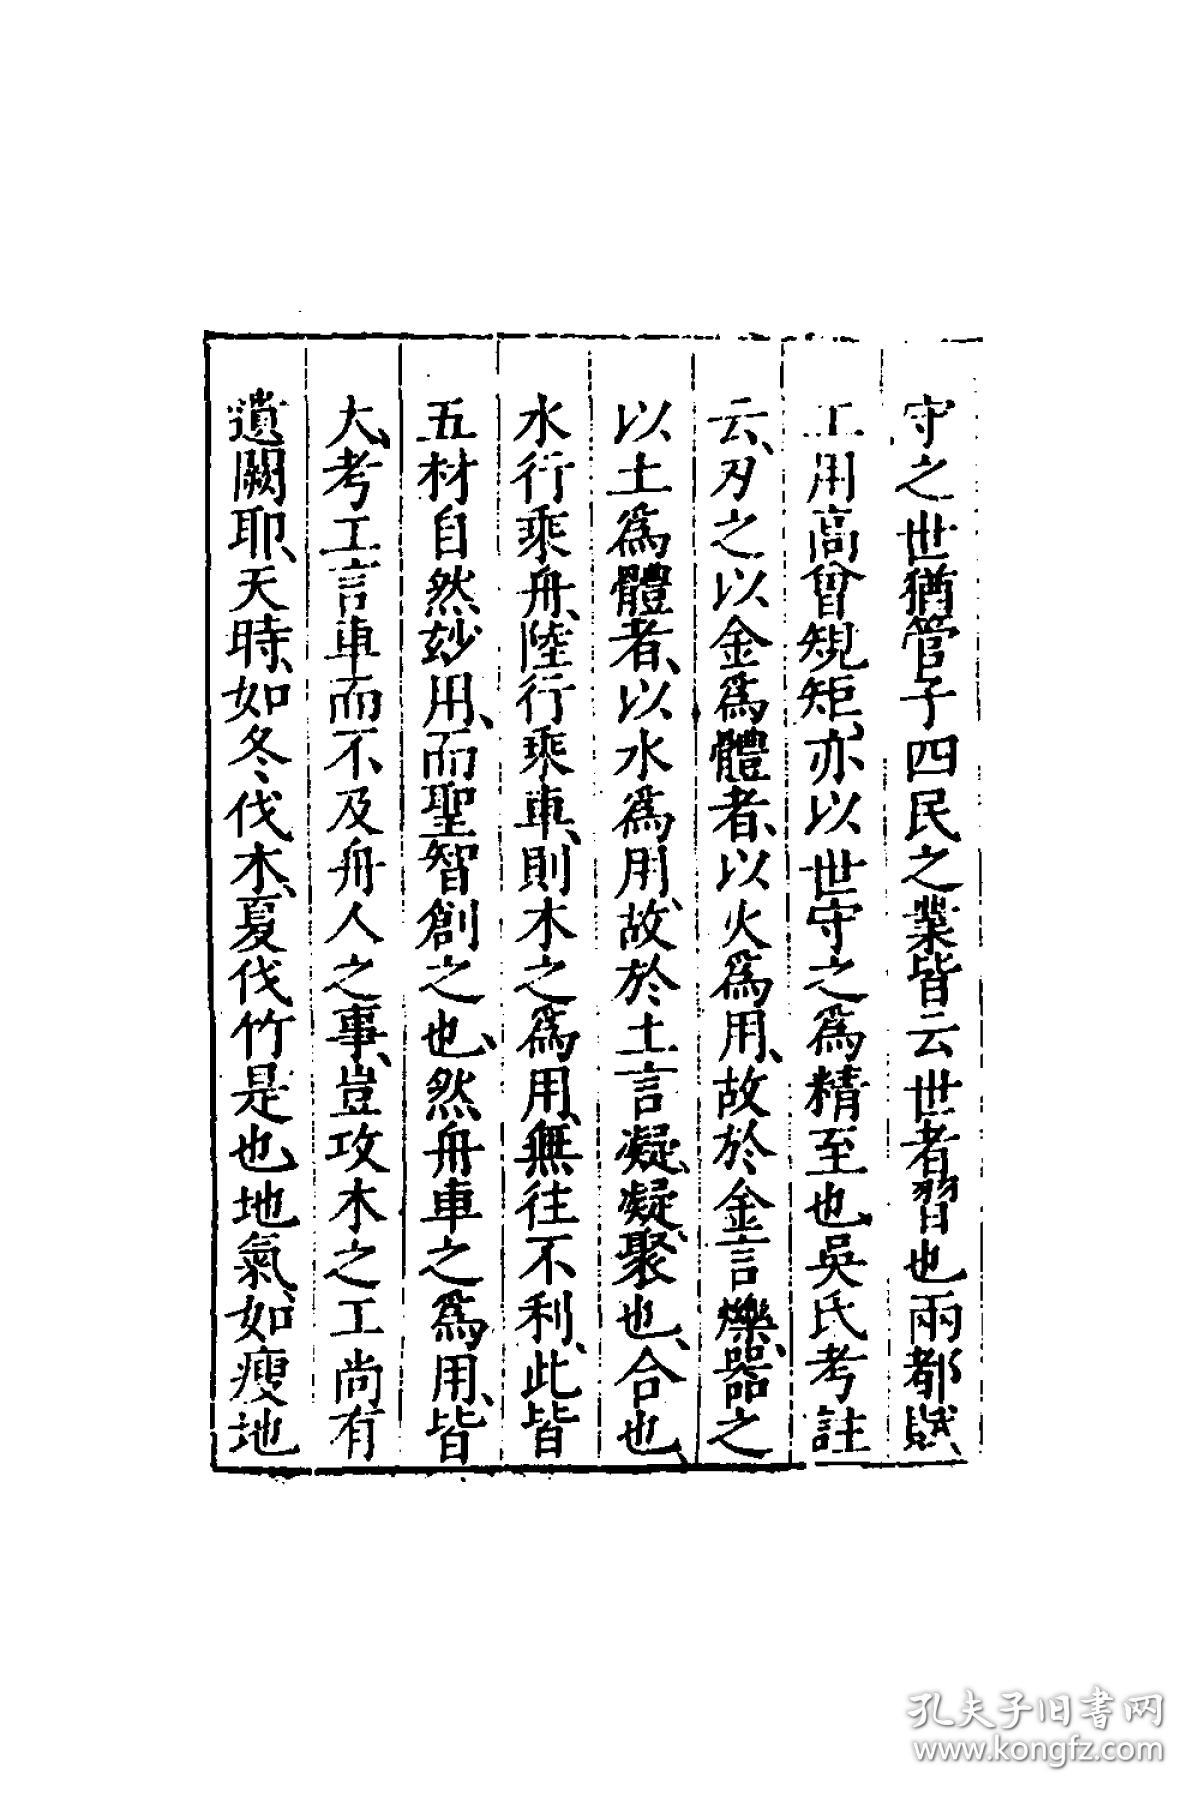 守之世猶管子四民之業皆云世者習也兩都賦、
工用高曾規矩、亦以世守之爲精至也、吳氏考註
云、刃之以金爲體者、以火爲用、故於金言爍、器之
以土爲體者、以水爲用、故於土言凝、凝聚也、合也、
水行乘舟、陸行乘車、則木之爲用、無往不利、此皆
五材自然妙用、而聖智創之也、然舟車之爲用、皆
大、考工言車而不及舟人之事、豈攻木之工尚有
遺闕耶、天時、如冬伐木、夏伐竹是也地氣、如瘦地
孔夫子旧书网
www.kongfz.com